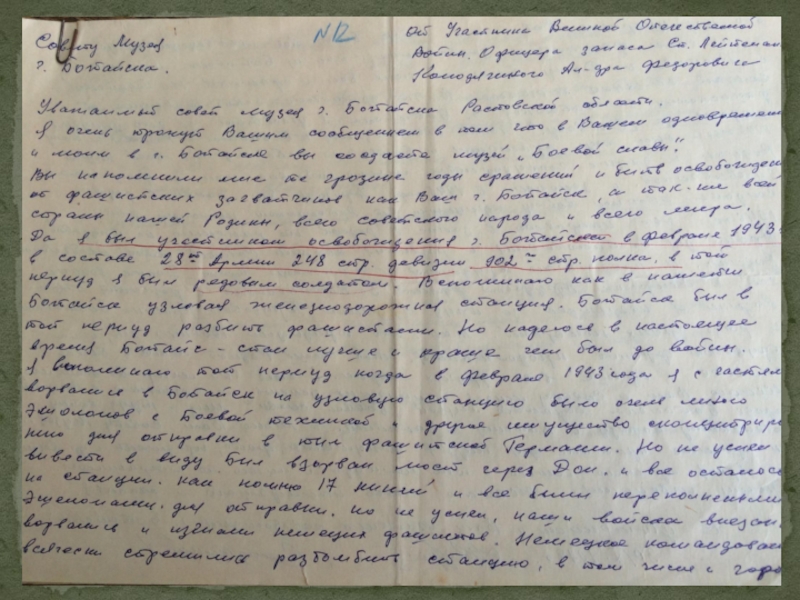 Совету Музея
г. Ботайска.
№12
От Участника Великой Отечественной
Войны. Офицера запаса Ст. Лейтенан
Ал-дра Федоровича
Уважаемый совет музея г. Ботайска Ростовской области.
Я очень тронут Вашим сообщением в том что в Вашем одновременно
и моем в г. Ботайске вы создаете музей „Боевой славы".
Вы напомнили мне те грозные годы сражений и битв освобожден
от фашистских захватчиков как Ваш г. Ботайск, а так-же всей
страны нашей Родины, всего советского народа и всего мира.
Да я был участником освобождения г. Ботайска в феврале 1943
в составе 28ой Армии 248 стр. девизии 902го стр. полка, в той
период я был редовым солдатом. Вспоминаю как в памяти
Ботайск узловая железнодорожная станция. Ботайск был в
тот период разбить фашистами. Но надеюсь в настоящее
время Ботайс - стал лучше и краше чем был до войны.
Я вспоминаю тот период когда в феврале 1943 года я с частям
ворвался в Ботайск на узловую станцию было очень много
Эшолонов с Боевой техникой и другое имущество сконцентриро
но для отправки в тыл фашитской Германии. Но не успел
вывести в виду был взорван мост через Дон. и все осталось
на станции. как помню 17 линий и все были переполнены
Эшелонами. для отправки. но не успел, наши войска внезап.
ворвались и изгнали немецких фашистов. Немецкое командован
всячески стремились разбомбить станцию, в том числе и горо